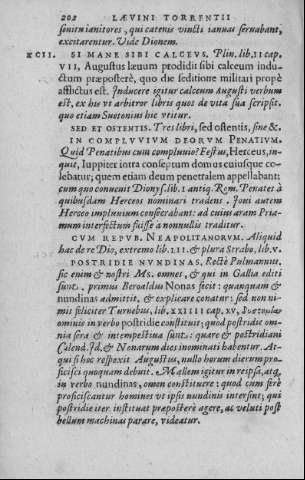 202 LÆVINI TORRENTII
seruituianitores, qui catenis vincti ianuas seruabant,
excitarentur. Vide Dionem.
XCII. SI MANE SIBI CALCEVS. Plin. lib. II cap.
VII, Augustus læuum prodidit sibi calceum indu-
ctum præposterè, quo die seditione militari propè
afflictus est. Inducere igitur calceum Augusti verbum
est, ex his vt arbitror libris quos de vita sua scripsit,
quo etiam Suetonius hic vtitur.
SED ET OSTENTIS. Tres libri, sed ostentis, sine &.
IN COMPLVVIVM DEORVM PENATIVM.
Quid Penatibus cum compluuio? Festus, Herceus, in-
quit, Iuppiter intra conseptum domus cuiusque co-
lebatur; quem etiam deum penetralem appellabant:
cum quo conuenit Dionys. lib. I antiq. Rom. Penates à
quibusdam Herceos nominari tradens. Ioui autem
Herceo impluuium consecrabant: ad cuius aram Pria-
mum interfectum fuisse à nonnullis traditur.
CVM REPVB. NEAPOLITANORVM. Aliquid
hac de re Dio, extremo lib. LII. & plura Strabo, lib. V.
POSTRIDIE NVNDINAS. Rectè Pulmannus.
sic enim & nostri Ms. omnes, & qui in Gallia editi
sunt. primus Beroaldus Nonas fecit: quamquam &
nundinas admittit, & explicare conatur: sed non ni-
mis feliciter Turnebus, lib. XXIIII cap. XV,
ominis in verbo postridie constituit; quod postridie om-
nia sera & intempestiua sunt: quare & postridiani
Calend. Id. & Nonarum dies inominati habentur. At-
qui si hoc respexit Augustus, nullo horum dierum pro-
ficisci quoquam debuit. Mallem igitur in reipsa, atq́,
in verbo nundinas, omen constituere: quod cum ferè
proficiscantur homines vt ipsis nundinis intersint; qui
postridie iter instituat præposterè agere, ac veluti post
bellum machinas parare, videatur.